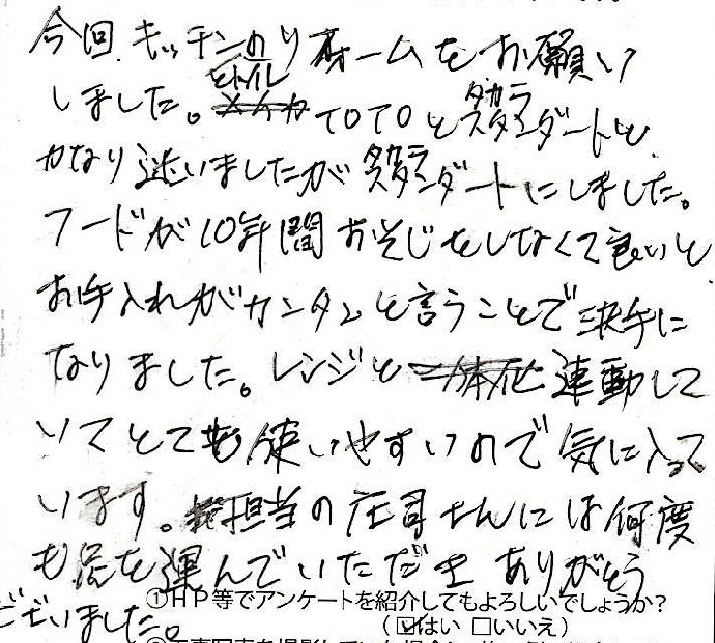 今回、キッチンのリフォームをお願い
しました。リクシル TOTOとタカラスタンダートと
かなり迷いましたがタカラスタンダートにしました。
フードが10年間おそうじをしなくて良いと
お手入れがカンタンと言うことで決め手に
なりました。レンジと一体化連動して
いてとても使いやすいので気に入って
います。担当の庄司さんには何度
も足を運んでいただき ありがとう
ございました。
①HP等でアンケートを紹介してもよろしいでしょうか?
(☑はい □いいえ)